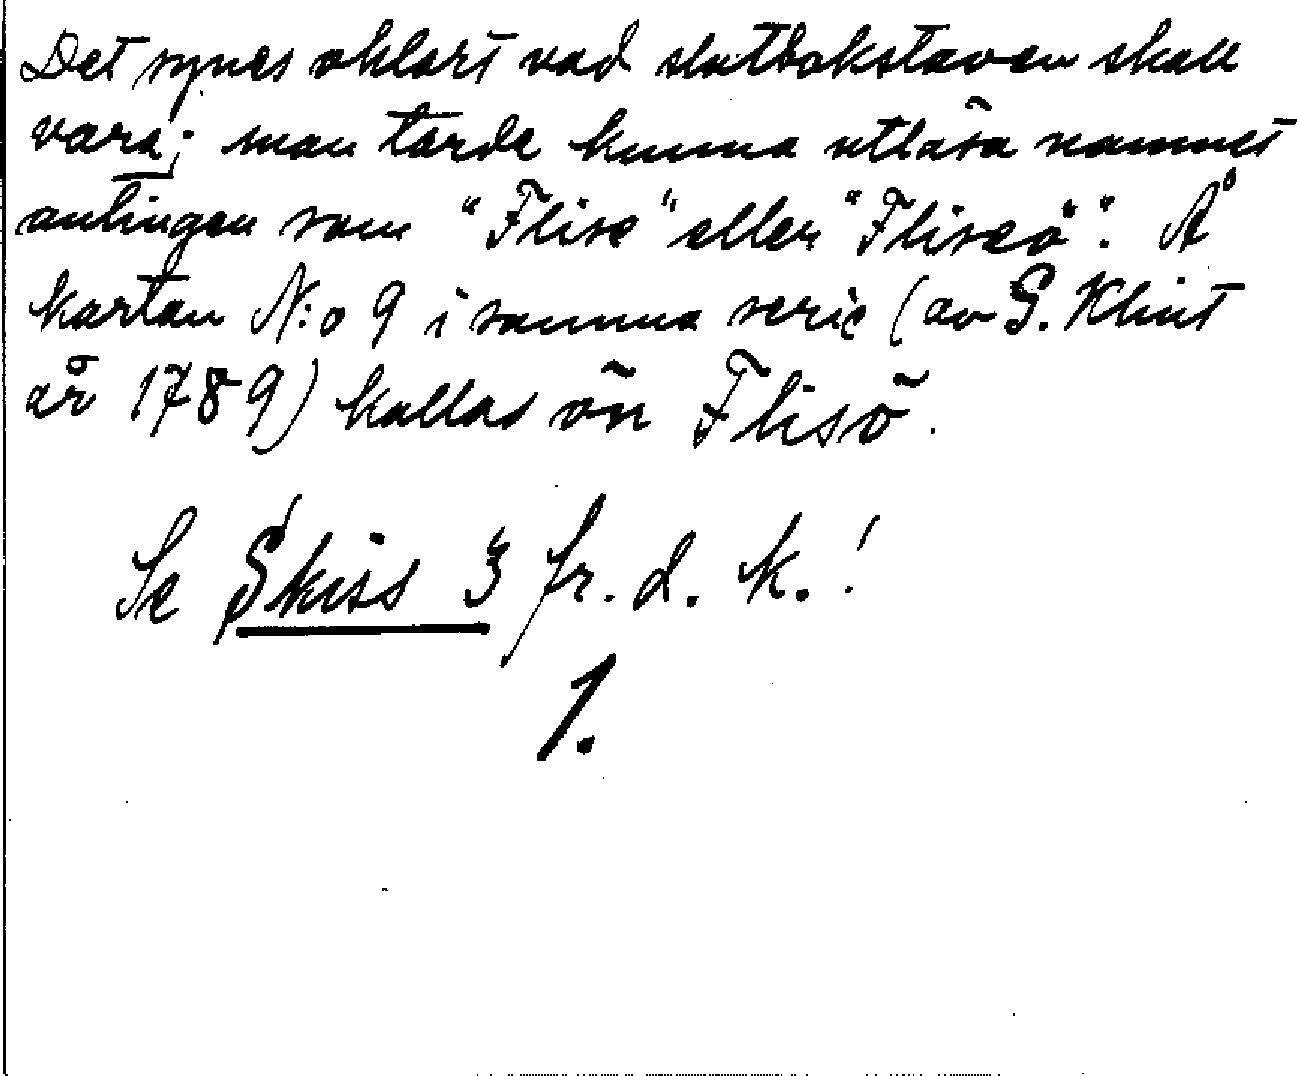 Det synes oklart vad slutbokstaven skall
vara; man tärde kunna utläsa namnet
antingen som "Flise" eller "Fliseö". Å
kartan N:o 9 i samma serie (av G. Klint
år 1789) kallas ön Flisö.
Se Skiss 3 fr. d. k.!
1.